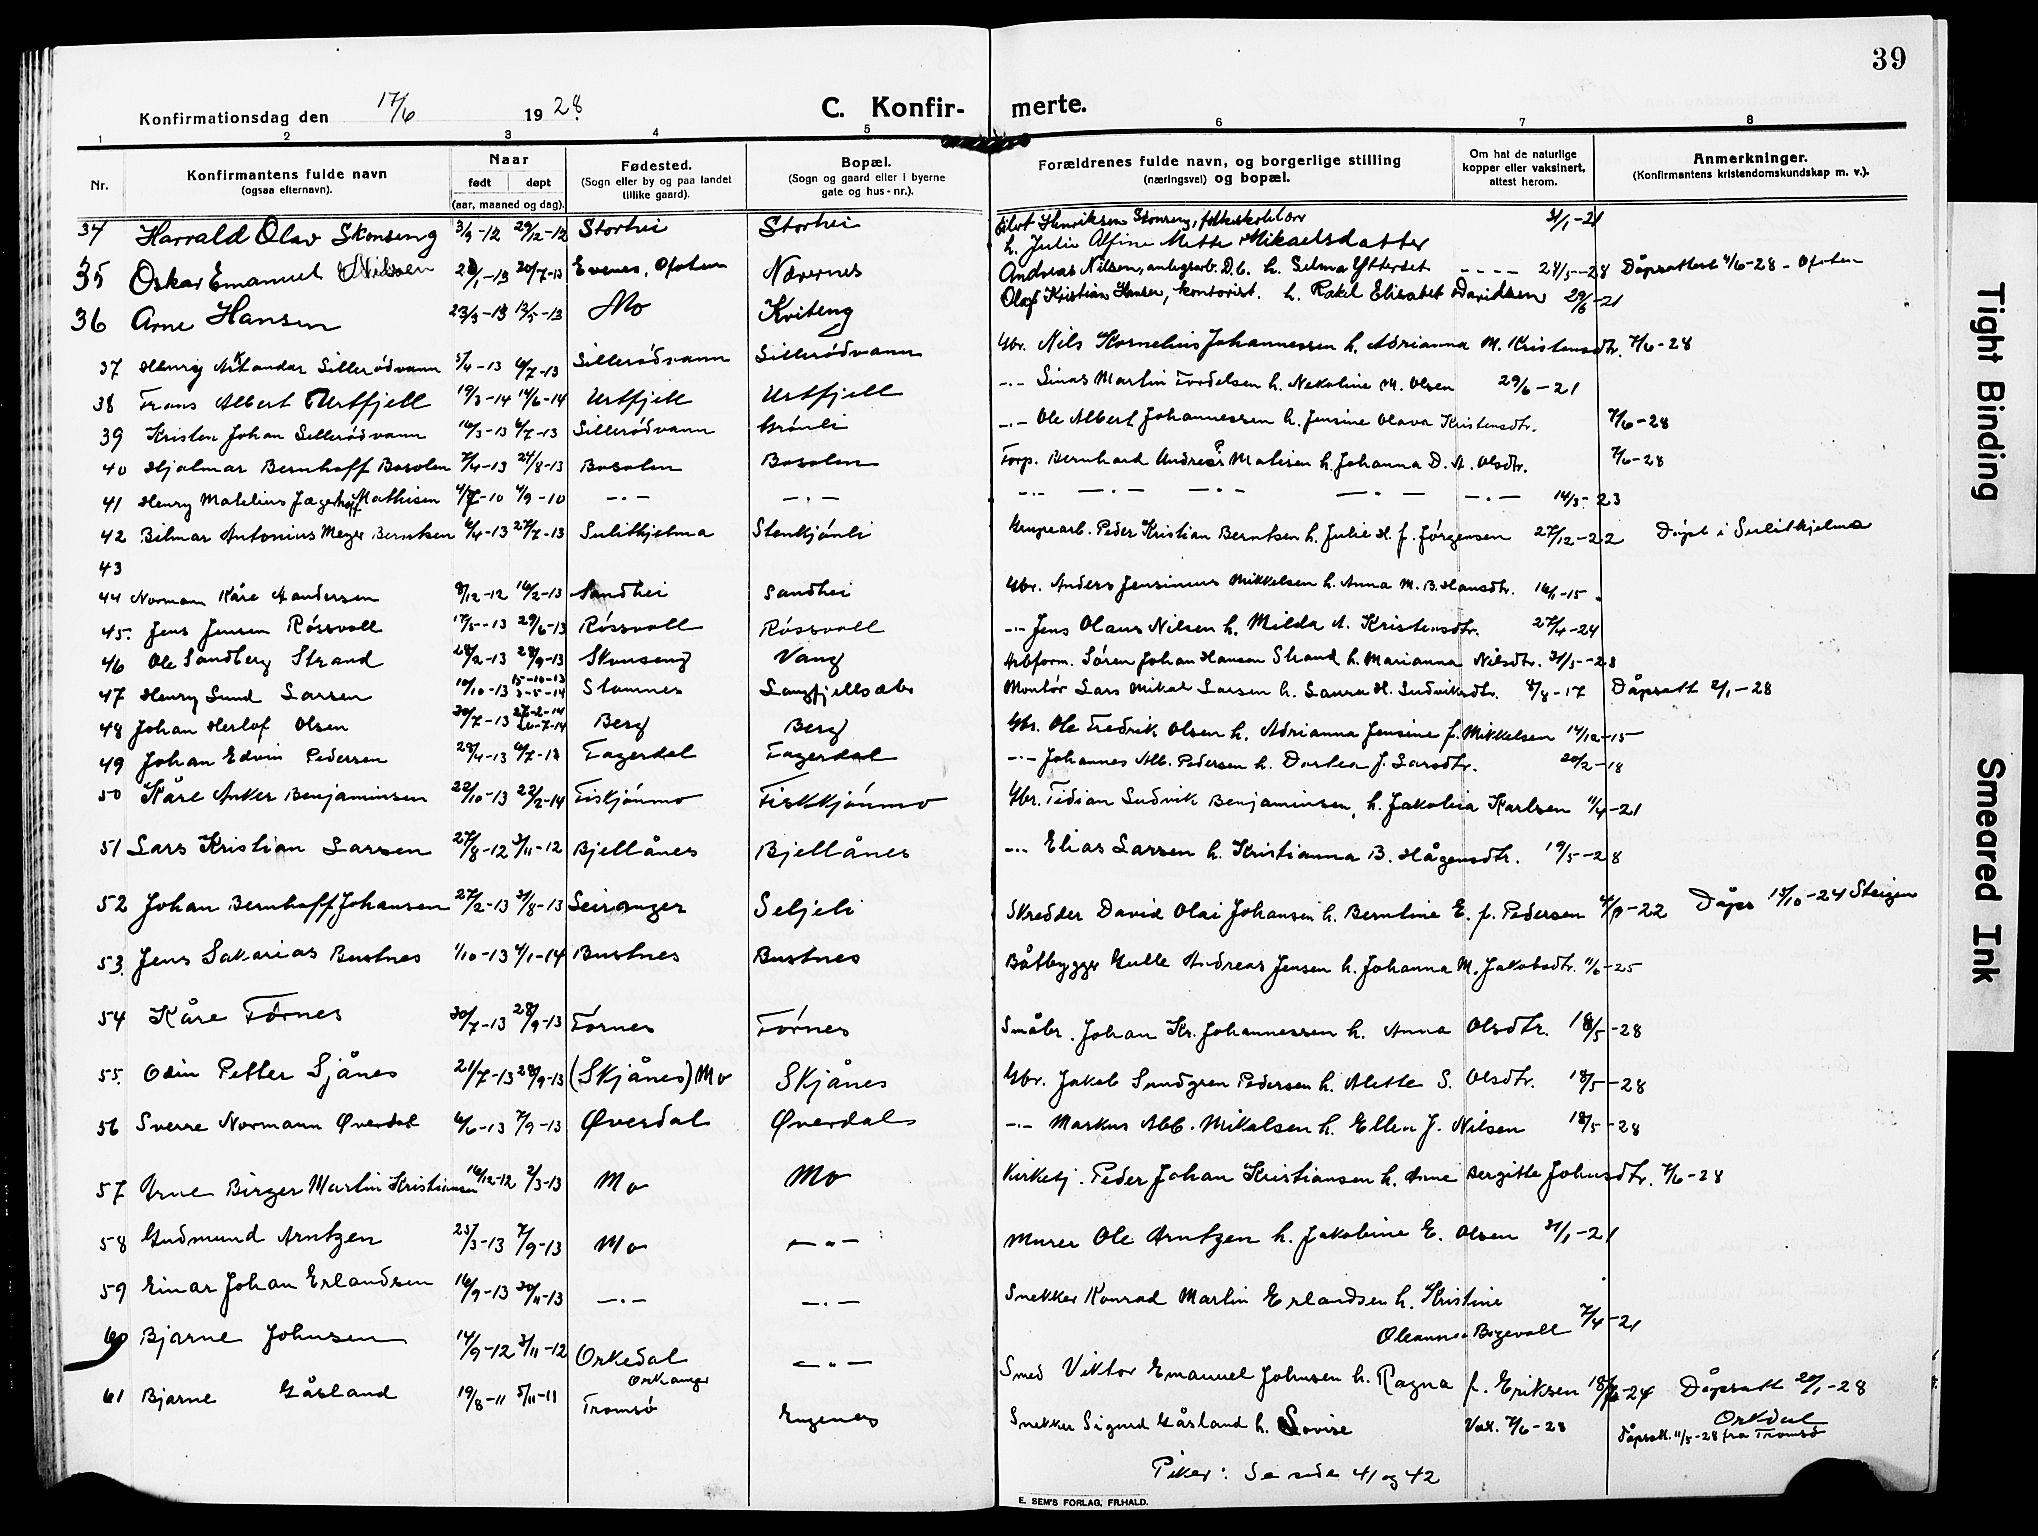 39
Konfirmationsdag den 17/6 1928.
C. Konfir- merte.
1 2 3 4 5 6 7 8
Nr.
Konfirmantens fulde navn
(ogsaa efternavn).
Naar
født døpt
(aar, maaned og dag).
Fødested.
(Sogn eller by og paa landet
tillike gaard).
Bopæl.
(Sogn og gaard eller i byerne
gate og hus-nr.).
Forældrenes fulde navn, og borgerlige stilling
(næringsvei) og bopæl.
Om hat de naturlige
kopper eller vaksinert,
attest herom.
Anmerkninger.
(Konfirmantens kristendomskundskap m. v.).
34 Harrald Olav Skonseng 3/9-12 29/12-12 Storhei Storhei Eilert Henriksen Skonseng, folkeskolelær 31/1-21
h. Julie Alfine Mette Mikaelsdatter
35 Oskar Emanuel Nilsen 20/7-13 Evenes, Ofoten Nævernes Andreas Nilsen, anlegsarb. D.b. h. Selma Ytterset ---- 24/5-28 Dåpsattest 4/6-28 - Ofoten
36 Arne Hansen 23/3-13 13/5-13 Mo Kviteng Olaf Kristian Hansen, kontorist. h. Rakel Elisabet Davidsen 29/6-21
37 Henry Sillerødvann 5/4-13 6/7-13 Sillerødvann Sillerødvann Gbr. Nils Kornelius Johannessen h. Adrianna M. Kristensdtr. 7/6-28
38 Frans Albert Urtfjell 19/3-14 14/6-14 Urtfjell Urtfjell -"- Sinas Martin Tordelsen h. Nekoline M. Olsen 29/6-21
39 Kristen Johan Sillerødvann 16/3-13 6/7-13 Sillerødvann Grønli -"- Ole Albert Johannessen h. Jensine Olava Kristensdtr. 7/6-28
40 Hjalmar Bernhoff Bosolen 7/4-13 24/8-13 Bosolen Bosolen Forp. Bernhard Andreas P Matisen h. Johanna D. A. Olsdtr. 7/6-28
41 Henry Matelius Jægerhoff Mathisen 4/7-10 4/9-10 -"- -"- -"- -"- -"- -"- -"- 14/3-23
42 Bilmar Antonius Meyer Berntsen 6/4-13 27/7-13 Sulitkjelma Stenkjønli Grupearb. Peder Kristian Berntsen h. Julie H. f. Jørgensen 27/12-22 Døpt i Sulitkjelma
43
44 Norman Kåre Andersen 8/12-12 16/2-13 Sandhei Sandhei Gbr. Anders Jensinius Mikkelsen h. Anna M. B. Hansdtr. 16/1-15
45. Jens Jensen Røssvoll 17/5-13 29/6-13 Røssvoll Røssvoll -"- Jens Olaus Nilsen h. Milda A. Kristensdtr. 27/4-24
46 Ole Sandberg Strand 28/2-13 28/9-13 Skonseng Vang Arbform. Søren Johan Hansen Strand h. Marianna Nilsdtr. 31/5-28
47 Henry Lund Larsen 10/10-13 15-10-13 3-5-14 Stamnes Langfjellsæter Montør Lars Mikal Larsen h. Laura H. Ludviksdtr. 8/8-17 Dåpsatt 2/1-28
48 Johan Herlof Olsen 30/7-13 27-2-14 26-7-14 Berg Berg Gbr. Ole Fredrik Olsen h. Adrianna Jensine f. Mikkelsen 14/12-15
49 Johan Edvin Pedersen 28/4-13 6/7-13 Fagerdal Fagerdal -"- Johannes Alb. Pedersen h. Dortea J. Larsdtr. 20/2-18
50 Kåre Anker Benjaminsen 22/10-13 22/2-14 Fiskjønmo Fiskkjønmo Gbr. Fedian Ludvik Benjaminsen, h. Jakobia Karlsen 11/4-21
51 Lars Kristian Larsen 27/8-12 3/11-12 Bjellånes Bjellånes -"- Elias Larsen h. Kristianna B. Hågensdtr. 19/5-28
52 Johan Bernhoff Johansen 27/2-13 31/8-13 Leiranger Seljeli Skredder David Olai Johansen h. Berntine E. f. Pedersen 4/9-22 Dåps 15/10-24 Steigen
53. Jens Sakarias Bustnes 1/10-13 4/1-14 Bustnes Bustnes Båtbygger Gulle Andreas Jensen h. Johanna M. Jakobsdtr. 11/6-25
54 KåreFørnes 30/7-13 28/9-13 Førnes Førnes Småbr. Johan Kr. Johannessen h. Anna Olsdtr. 18/5-28
55. Odin Petter Sjånes 21/7-13 28/9-13 (Skjånes) Mo Skjånes Gbr. Jakob Sundgren Pedersen h. Alette S. Olsdtr. 18/5-28
56 Sverre Normann Øverdal 6/6-13 7/9-13 Øverdal Øverdal -"- Markus Alb. Mikalsen h. Ellen J. Nilsen 18/5-28
57 Arne Birger Martin Kristiansen 16/12-12 2/3-13 Mo Mo Kirketj. Peder Johan Kristiansen h. Anne Bergitte Johnsdtr. 7/6-28
58 Gudmund Arntzen 25/3-13 7/9-13 Mo -"- Murer Ole Arntzen h. Jakobine E. Olsen 31/1-21
59 Einar Johan Erlandsen 16/9-13 30/11-13 -"- -"- Snekker Konrad Martin Erlandsen h. Kristine
Oleanna Bogevoll 7/4-21
60 Bjarne Johnsen 14/9-12 3/11-12 Orkedal Orkanger -"- Smed Viktor Emanuel Johnsen h. Ragna f. Eriksen -24 Dåpsatt 20/1-28
Orkdal
61 Bjarne Gåsland 19/8-11 5/11-11 Tromsø Engenes Snekker Sigurd Gåsland h. Lovise Vax. 7/6-28 Dåpsatt. 11/5-28 fra Tromsø
Piker: Se side 41 og 42
E. SEM'S FORLAG, FR.HALD.
Tight Binding
Smeared Ink